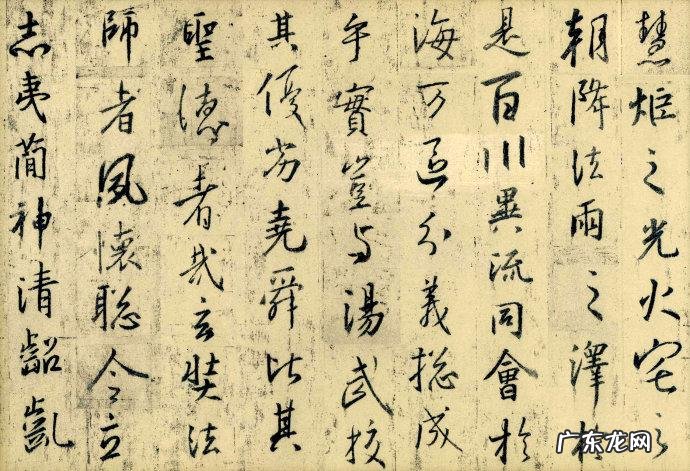 慧炬之光火宅之
朝降法雨之澤於
是百川異流同會於
海万區分義總成
乎實豈与湯武校
其優劣堯舜比其
聖德者哉玄奘法
師者夙懷聰令立
志夷簡神清齠齔
广东龙网